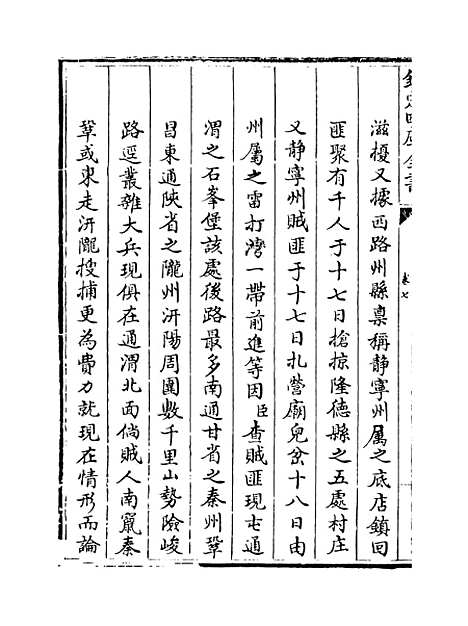 欽定四庫全書
卷七
滋擾又據西路州縣稟稱靜寧州屬之底店鎮回
匪聚有千人于十七日搶掠隆德縣之五處村庄
又靜寧州賊匪于十七日扎營廟兒岔十八日由
州屬之雷打灣一帶前進等因臣查賊匪現屯通
渭之石峯堡該處後路最多南通甘省之秦州鞏
昌東通陝省之隴州汧陽周圍數千里山勢險峻
路逕叢雜大兵現俱在通渭北面倘賊人南竄秦
鞏或東走汧隴搜捕更為費力就現在情形而論